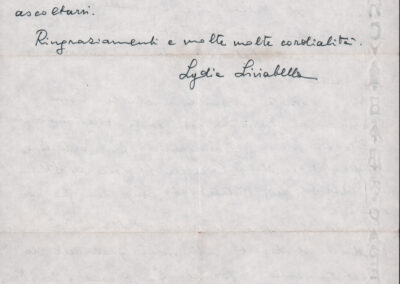 ascoltarsi.
Ringraziamenti e molte molte cordialità.
Lydia Liviabella